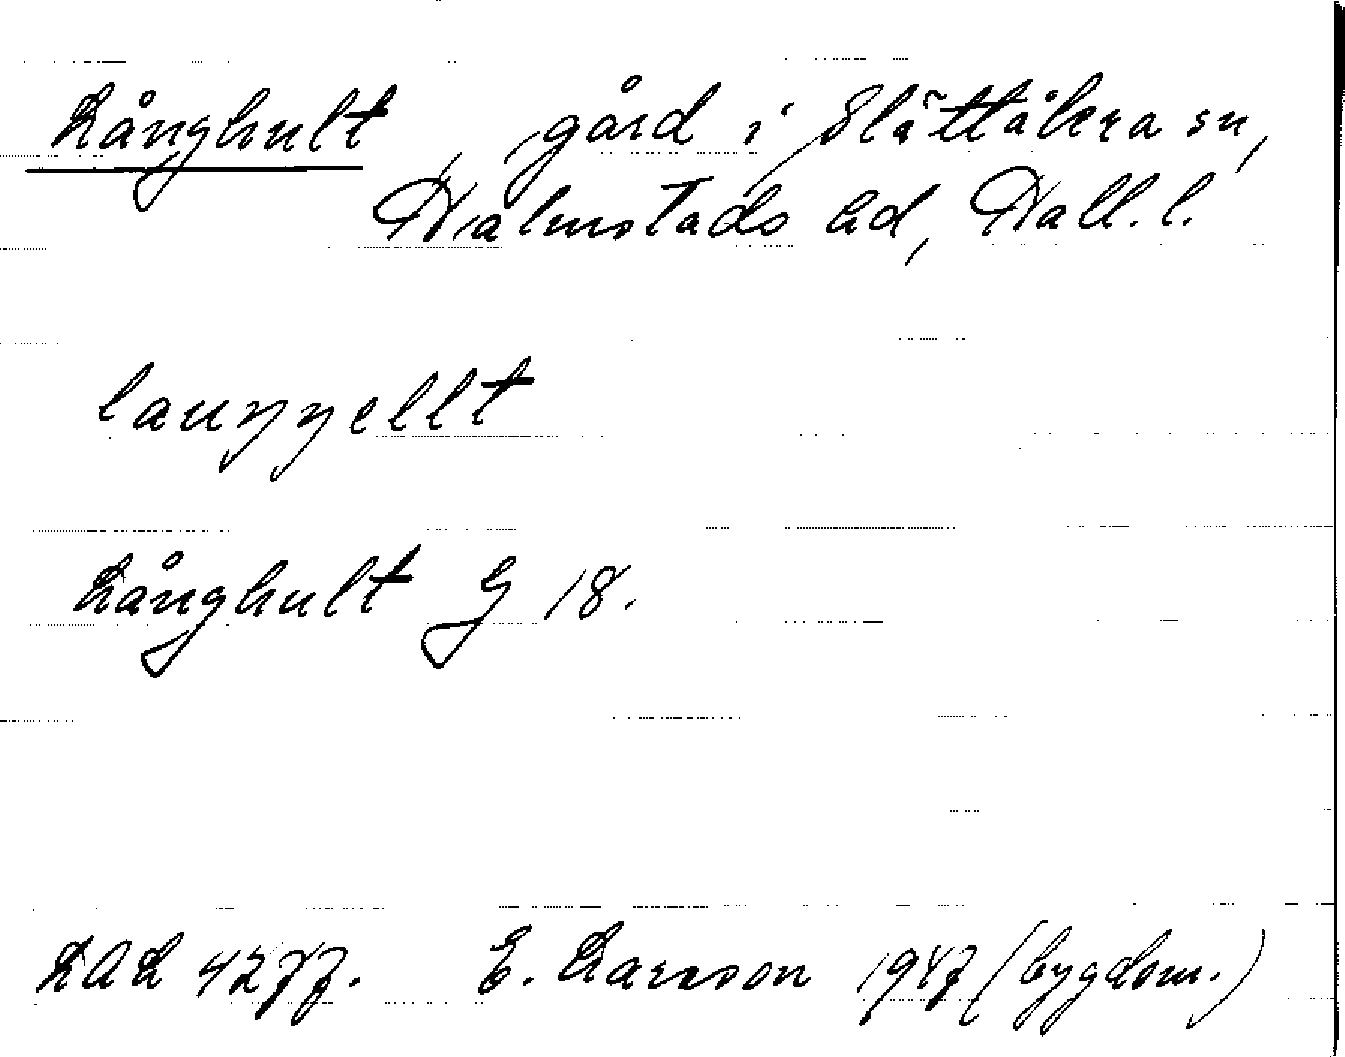 Långhult, gård i Slättåkra sn,
Halmstads hd, Hall. l.
lauŋŋellt
Långhult G 18.
LAL 4277. E. Larsson 1947 (bygdem.)